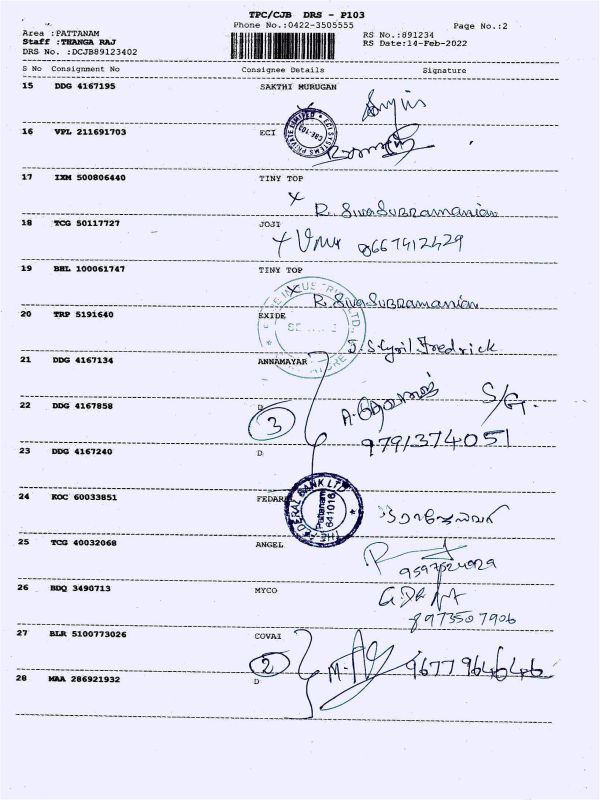 TPC/CJB DRS - P103
Phone No.:0422-3505555
Page No.:2
Area :PATTANAM
RS No.:891234
Staff :THANGA RAJ
RS Date:14-Feb-2022
DRS No. :DCJB89123402
S No Consignment No Consignee Details Signature
15 DDG 4167195 SAKTHI MURUGAN
16 VPL 211691703 ECI
ECI SYSTEMS PRIVATE LIMITED
CBE-103
17 IXM 500806440 TINY TOP
X R. SivaSubramanian
18 TCG 50117727 JOJI
X 8667412429
19 BHL 100061747 TINY TOP
X R. SivaSubramanian
20 TRP 5191640 EXIDE
S. Styril Fredrick
21 DDG 4167134 ANNAMAYAR
22 DDG 4167858 D
3 S/G.
9791374051
23 DDG 4167240 D
24 KOC 60033851 FEDARAL
FEDERAL BANK LTD
Pattanam
641016
25 TCG 40032068 ANGEL
9597524929
26 BDQ 3490713 MYCO
8973507906
27 BLR 5100773026 COVAI
2 9677964646
28 MAA 286921932 D